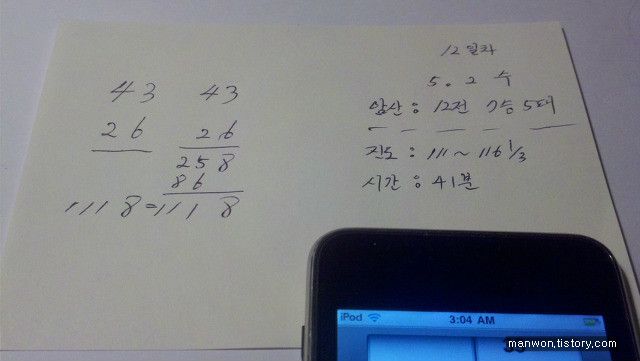 43 43
26 26
258
86
1118=1118
12일차
5.2 수
암산 : 12전 7승 5패
진도 : 111~116 1/3
시간 : 41분
iPod 3:04 AM
manwon.tistory.com